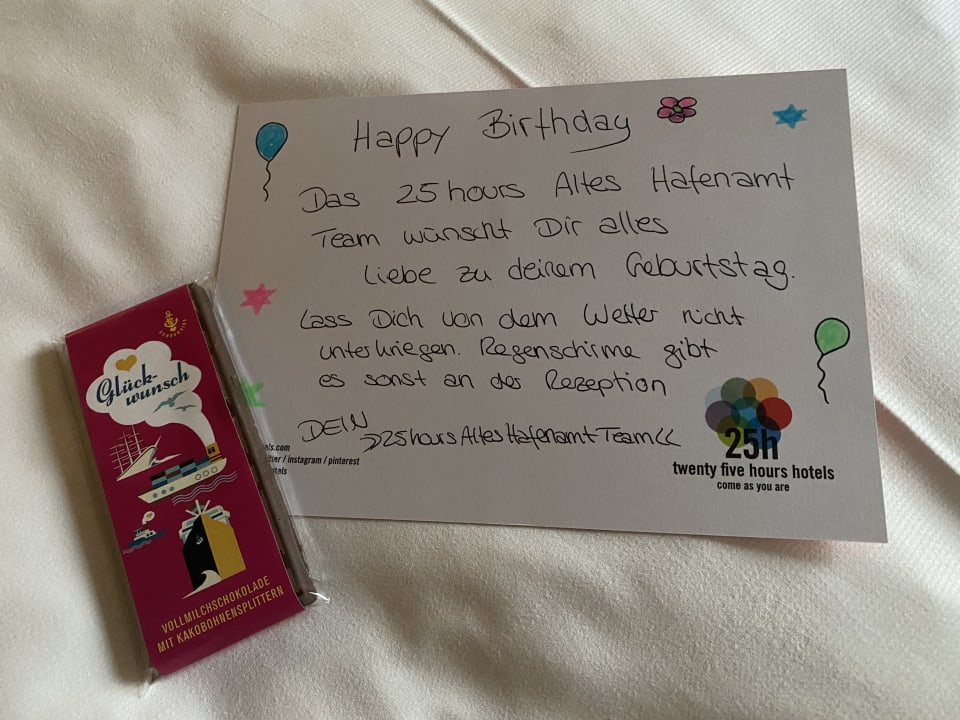 Happy Birthday
Das 25hours Altes Hafenamt
Team wünscht Dir alles
Liebe zu deinem Geburtstag.
Lass Dich von dem Wetter nicht
unterkriegen. Regenschirme gibt
es sonst an der Rezeption
DEIN
>>25hours Altes Hafenamt Team<<
els.com
itter / instagram / pinterest
otels
25h
twenty five hours hotels
come as you are
Glück-
wunsch
VOLLMILCHSCHOKOLADE
MIT KAKOBOHNENSPLITTERN